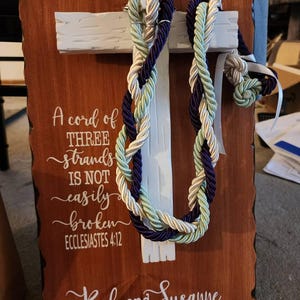 A cord of
THREE
strands
IS NOT
easily
broken
ECCLESIASTES 4:12